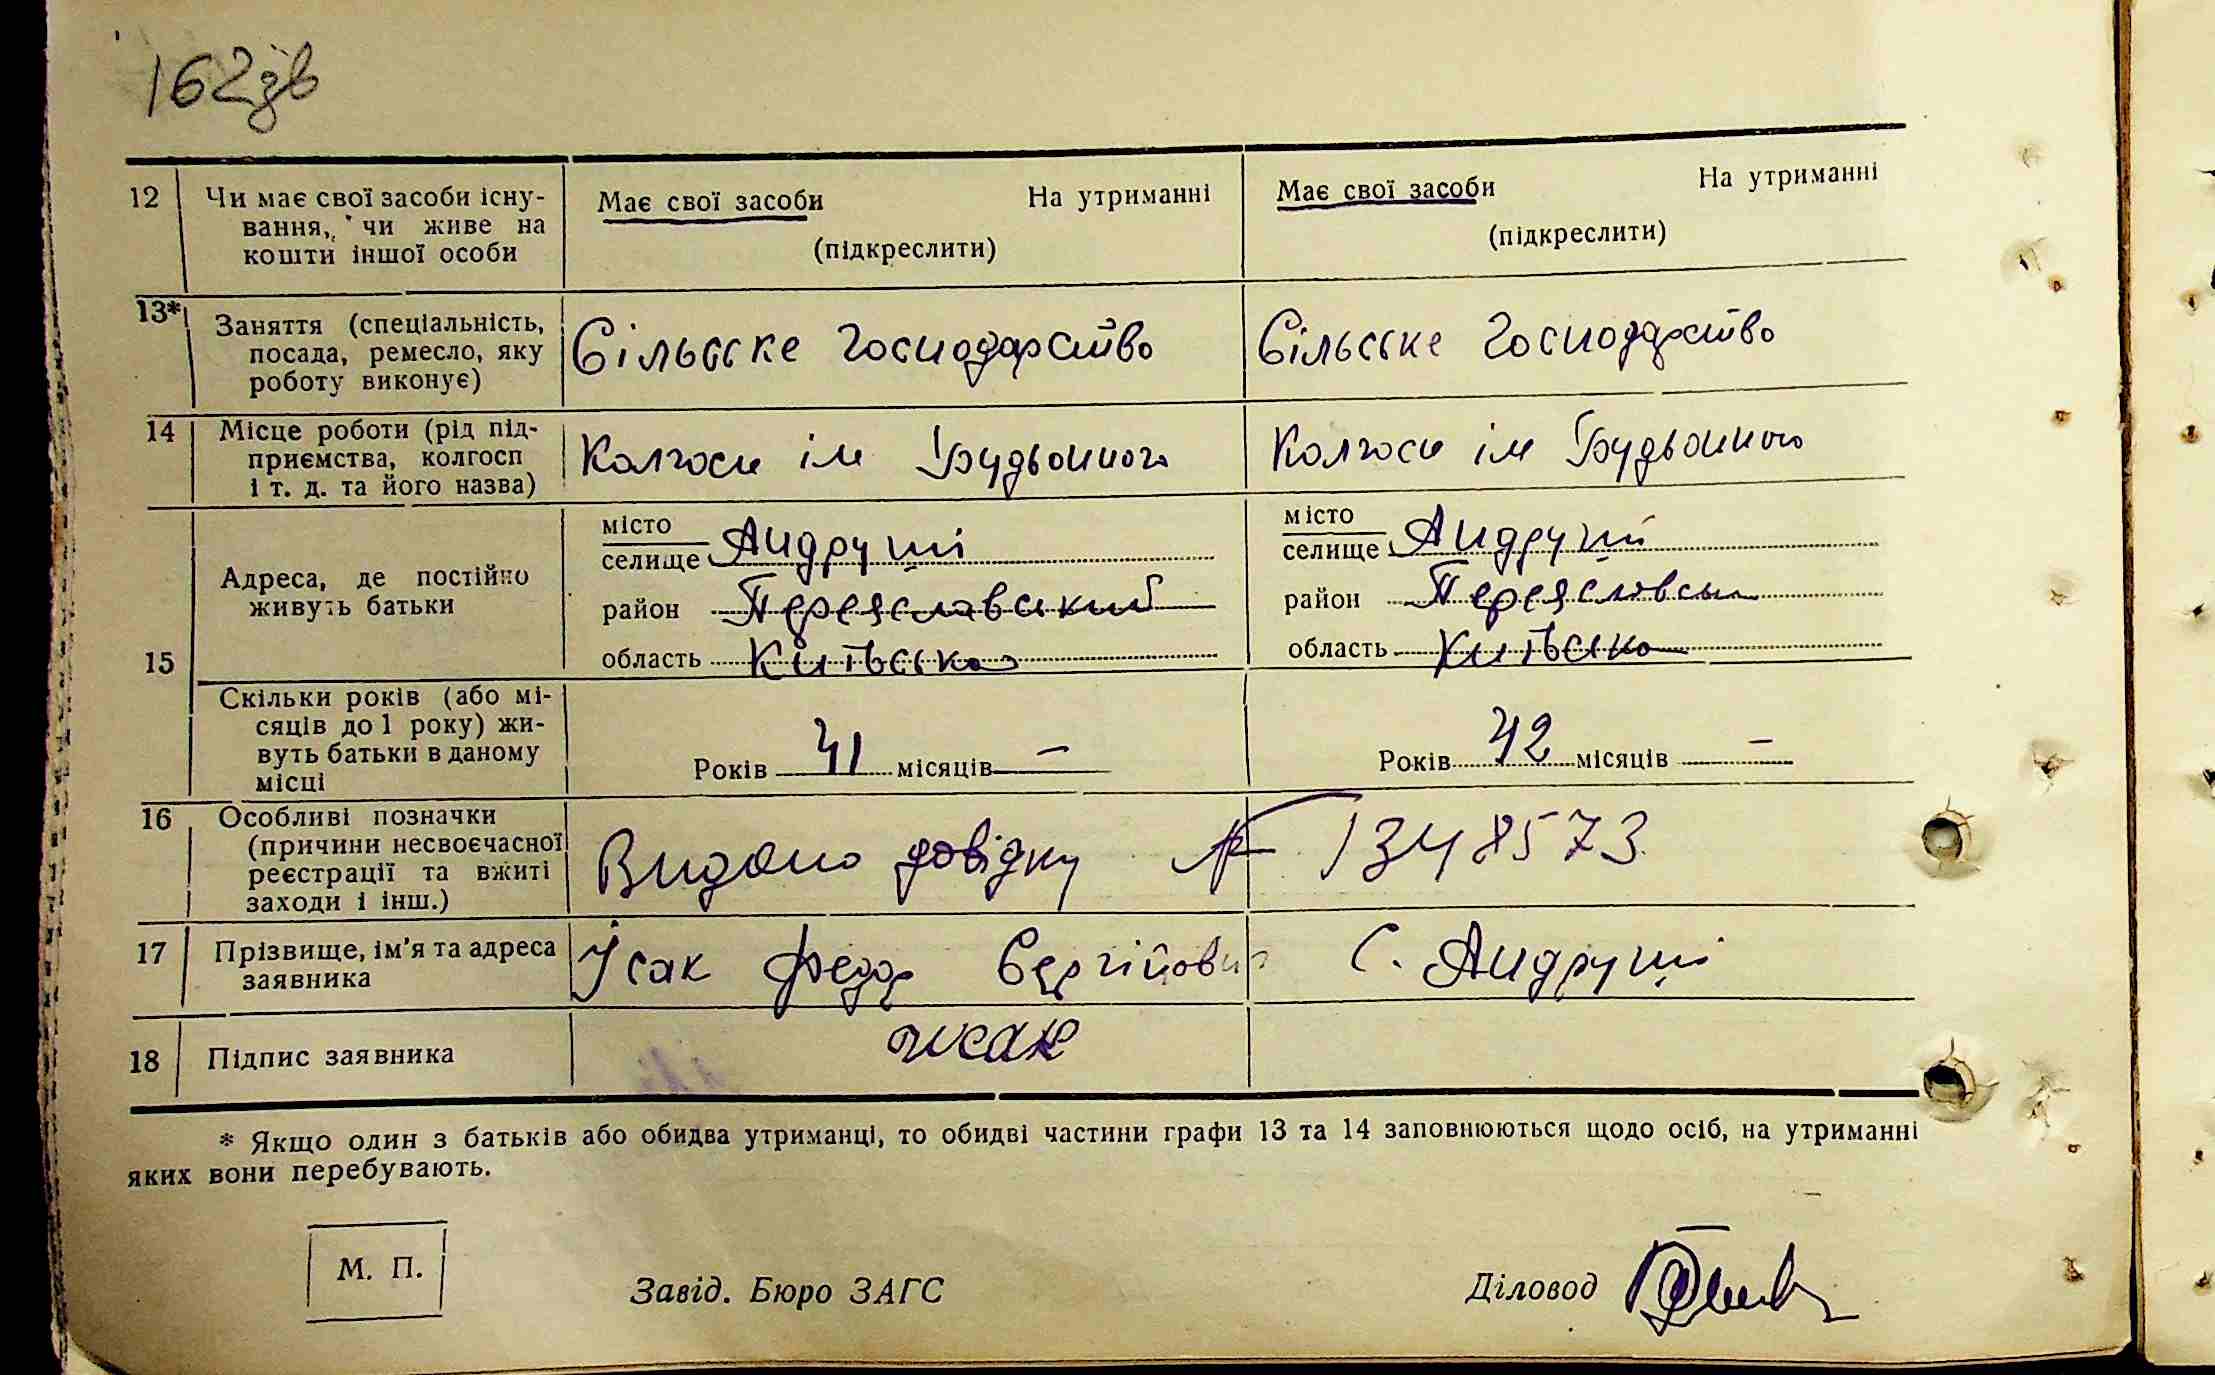 162зв
12 Чи має свої засоби існу- Має свої засоби На утриманні Має свої засоби На утриманні
вання, чи живе на (підкреслити) (підкреслити)
кошти іншої особи
13* Заняття (спеціальність, Сільсске Господарство Сільсске Господарство
посада, ремесло, яку
роботу виконує)
14 Місце роботи (рід під- Колгосп ім Будьонного Колгосп ім Будьонного
приємства, колгосп
і т. д. та його назва)
15 Адреса, де постійно місто селище Андруші місто селище Андруші
живуть батьки район Переяславський район Переяславськ
область Київська область Київська
Скільки років (або мі- Років 41 місяців – Років 42 місяців –
сяців до 1 року) жи-
вуть батьки в даному
місці
16 Особливі позначки Видано довідку № 1348573
(причини несвоєчасної
реєстрації та вжиті
заходи і інш.)
17 Прізвище, ім'я та адреса Ісак Федор Сергійович С. Андруші
заявника
18 Підпис заявника Исак
* Якщо один з батьків або обидва утриманці, то обидві частини графи 13 та 14 заповнюються щодо осіб, на утриманні
яких вони перебувають.
М. П.
Завід. Бюро ЗАГС Діловод